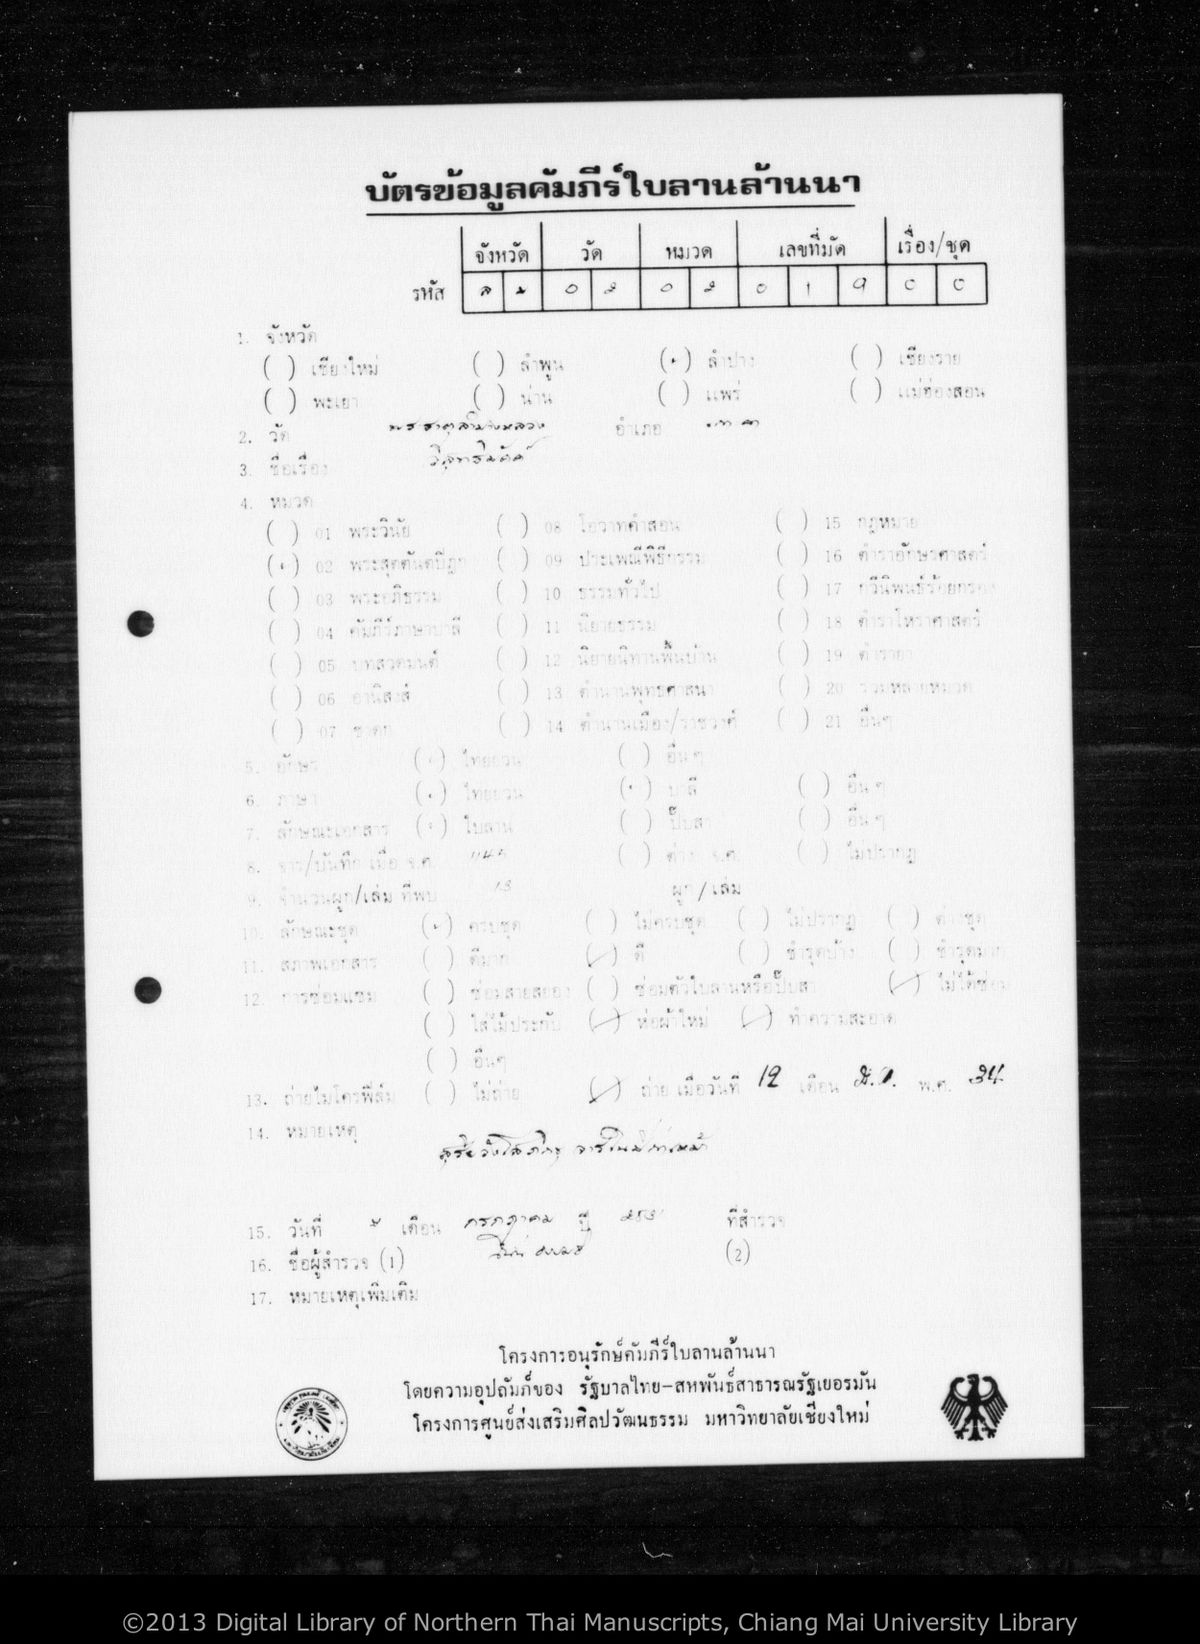 บัตรข้อมูลคัมภีร์ใบลานล้านนา
จังหวัด วัด หมวด เลขที่มัด เรื่อง/ชุด
รหัส 0 2 0 2 0 1 9 0 0
1. จังหวัด
( ) เชียงใหม่ ( ) ลำพูน (•) ลำปาง ( ) เชียงราย
( ) พะเยา ( ) น่าน ( ) แพร่ ( ) แม่ฮ่องสอน
2. วัด พระธาตุลำปางหลวง อำเภอ เกาะคา
3. ชื่อเรื่อง วิสุทธิมัคค์
4. หมวด
( ) 01 พระวินัย ( ) 08 โอวาทคำสอน ( ) 15 กฎหมาย
(•) 02 พระสุตตันตปิฎก ( ) 09 ประเพณีพิธีกรรม ( ) 16 ตำราอักษรศาสตร์
( ) 03 พระอภิธรรม ( ) 10 ธรรมทั่วไป ( ) 17 กวีนิพนธ์ร้อยกรอง
( ) 04 คัมภีร์ภาษาบาลี ( ) 11 นิยายธรรม ( ) 18 ตำราโหราศาสตร์
( ) 05 บทสวดมนต์ ( ) 12 นิยายนิทานพื้นบ้าน ( ) 19 ตำรายา
( ) 06 อานิสงส์ ( ) 13 ตำนานพุทธศาสนา ( ) 20 รวมหลายหมวด
( ) 07 ชาดก ( ) 14 ตำนานเมือง/ราชวงศ์ ( ) 21 อื่นๆ
5. อักษร (•) ไทยยวน ( ) อื่น ๆ
6. ภาษา (•) ไทยยวน (•) บาลี ( ) อื่น ๆ
7. ลักษณะเอกสาร (•) ใบลาน ( ) ปั๊บสา ( ) อื่น ๆ
8. จาร/บันทึก เมื่อ จ.ศ. ( ) ต่าง จ.ศ. ( ) ไม่ปรากฏ
9. จำนวนผูก/เล่ม ที่พบ 13 ผูก/เล่ม
10. ลักษณะชุด (•) ครบชุด ( ) ไม่ครบชุด ( ) ไม่ปรากฏ ( ) ต่างชุด
11. สภาพเอกสาร ( ) ดีมาก (/) ดี ( ) ชำรุดบ้าง ( ) ชำรุดมาก
12. การซ่อมแซม ( ) ซ่อมสายสยอง ( ) ซ่อมตัวใบลานหรือปั๊บสา (/) ไม่ได้ซ่อม
( ) ใส่ไม้ประกับ (/) ห่อผ้าใหม่ (/) ทำความสะอาด
( ) อื่นๆ
13. ถ่ายไมโครฟิล์ม ( ) ไม่ถ่าย (/) ถ่าย เมื่อวันที่ 12 เดือน พ.ศ. 34
14. หมายเหตุ
15. วันที่ เดือน กรกฎาคม ปี ที่สำรวจ
16. ชื่อผู้สำรวจ (1) (2)
17. หมายเหตุเพิ่มเติม
โครงการอนุรักษ์คัมภีร์ใบลานล้านนา
โดยความอุปถัมภ์ของ รัฐบาลไทย-สหพันธ์สาธารณรัฐเยอรมัน
โครงการศูนย์ส่งเสริมศิลปวัฒนธรรม มหาวิทยาลัยเชียงใหม่
©2013 Digital Library of Northern Thai Manuscripts, Chiang Mai University Library